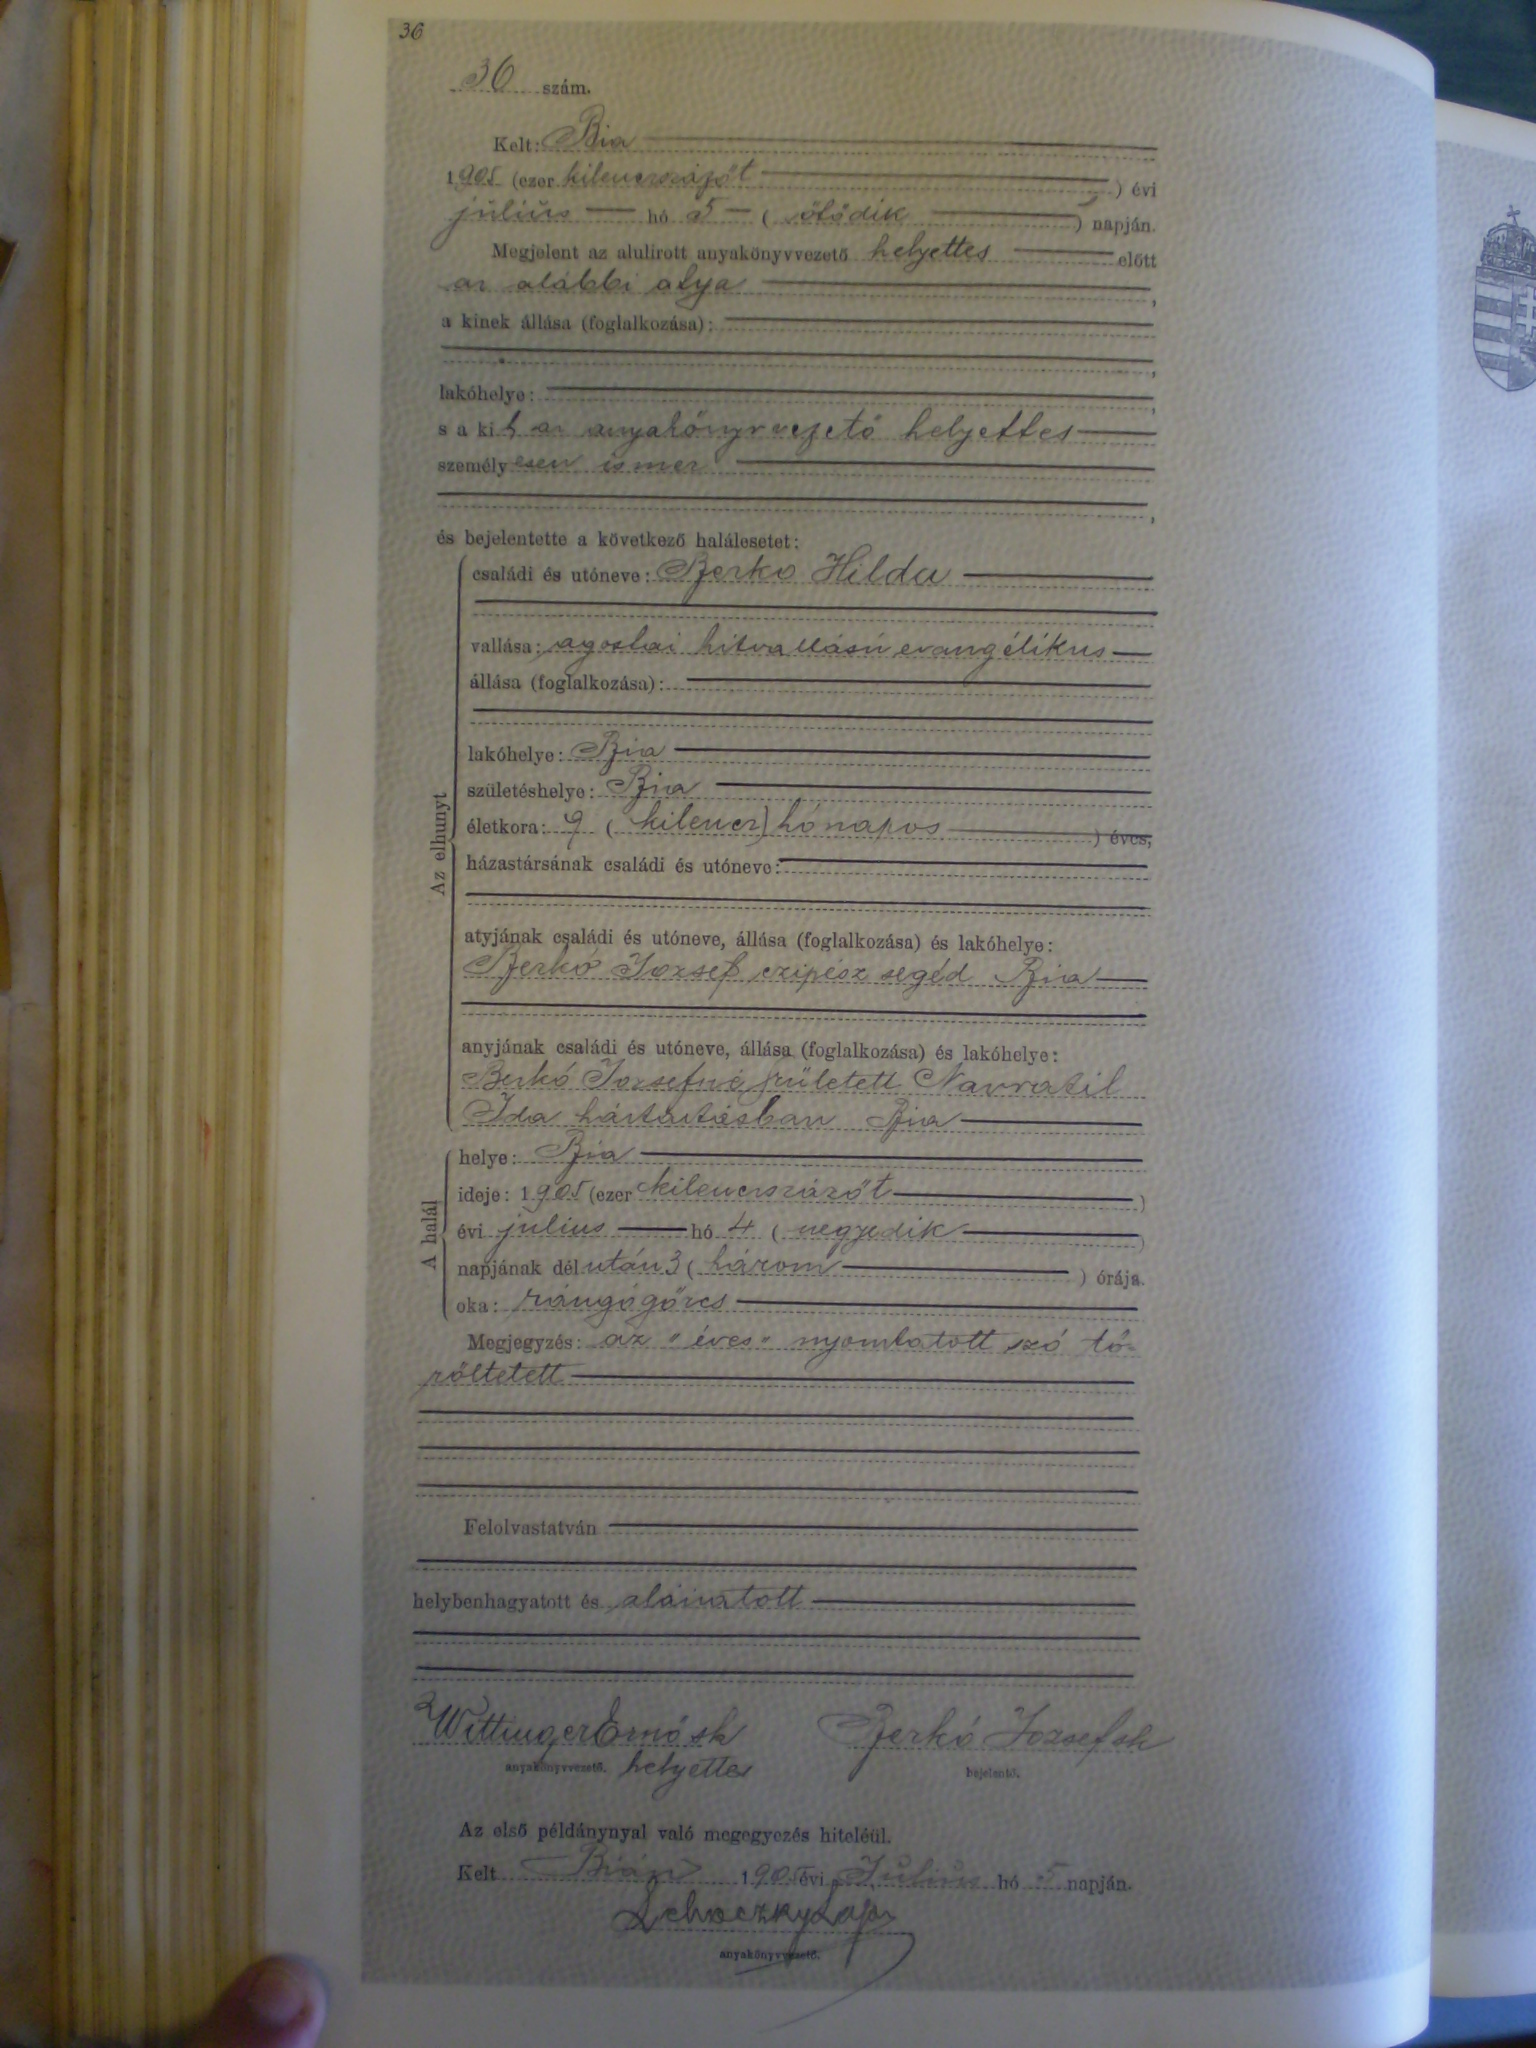 36
36 szám.
Kelt: Bia
1905 (ezer kilencszázöt ) évi
július hó 5 ( ötödik ) napján.
Megjelent az alulirott anyakönyvvezető helyettes előtt
az alábbi atya ,
a kinek állása (foglalkozása):
,
lakóhelye: ,
s a kit az anyakönyvvezető helyettes
személyesen ismer
,
és bejelentette a következő halálesetet:
Az elhunyt
családi és utóneve: Berko Hilda
vallása: agostai hitvallású evangélikus
állása (foglalkozása):
lakóhelye: Bia
születéshelye: Bia
életkora: 9 ( kilencz) hónapos ) éves,
házastársának családi és utóneve:
atyjának családi és utóneve, állása (foglalkozása) és lakóhelye:
Berkó Jozsef czipész segéd Bia
anyjának családi és utóneve, állása (foglalkozása) és lakóhelye:
Berkó Jozsefné született Navratil
Ida háztartásban Bia
A halál
helye: Bia
ideje: 1905 (ezer kilencszázöt )
évi július hó 4 ( negyedik )
napjának délután 3 ( három ) órája.
oka: rángógörcs
Megjegyzés: az "éves" nyomtatott szó tö-
röltetett
Felolvastatván
helybenhagyatott és aláiratott
Wittinger Ernő sk Berkó Jozsef sk
anyakönyvvezető. helyettes bejelentő.
Az első példánynyal való megegyezés hiteléül.
Kelt Bián 1905 évi Július hó 5 napján.
anyakönyvvezető.